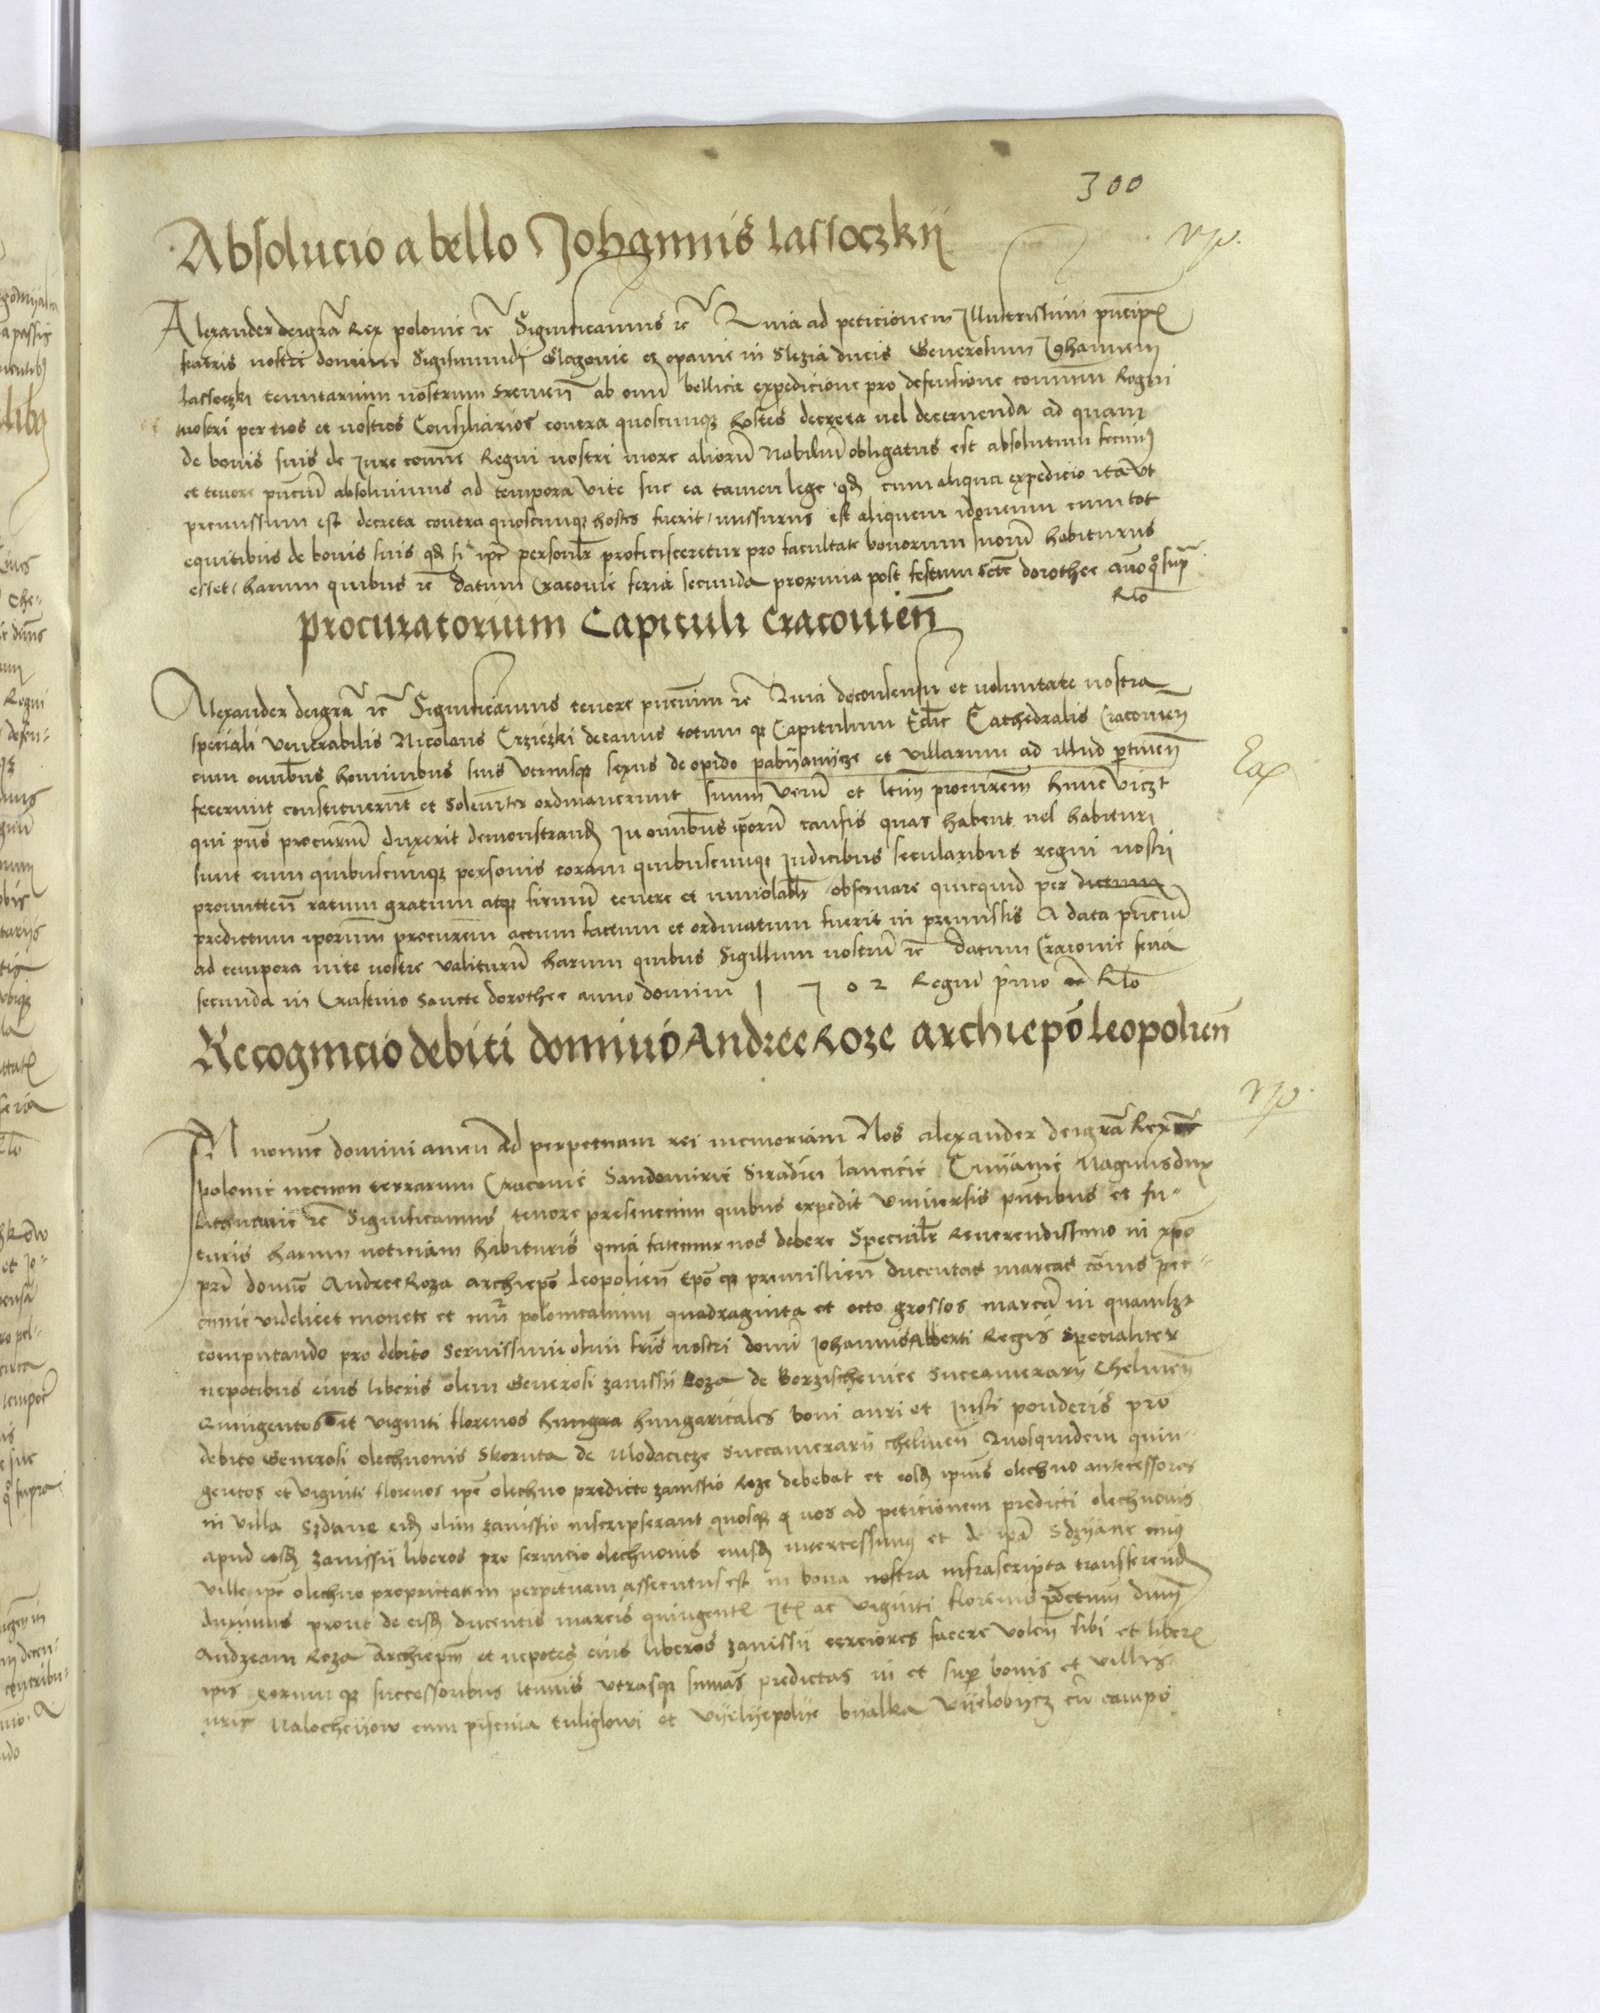 300
Absolucio a bello Johannis Lassoczkij
Alexander dei gra Rex polonie rc Significamus rc Quia ad peticionem Illustrissimi principis
fratris nostri domini Sigismundi Glogovie et opavie in Slezia ducis Generosum Johannem
lassoczki tenutarium nostrum ab omni bellica expedicione pro defensione communi Regni
nostri per nos et nostros Consiliarios contra quoscunqz hostes decreta vel decernenda ad quam
de bonis suis de Jure commi Regni nostri more aliorum Nobilium obligatus est absolutum fecimus
et tenore pncium absolvimus ad tempora vite sue ea tamen lege qd cum aliqua expedicio ita ut
premissum est decreta contra quoscunqz hostes fuerit, missurus est aliquem idoneum cum tot
equitibus de bonis suis qd si ipse personalr proficisceretur pro facultate bonorum suorum habiturus
esset, harum quibus rc datum Cracovie feria secunda proxima post festum scte dorothee anno quo supra
Rlo
procuratorium Capituli Cracovien
Alexander dei gra rc Significamus tenore pncium rc Quia de consensu et voluntate nostra
speciali Venerabilis Nicolaus Crziczki decanus totum qz Capitulum Eclie Cathedralis Cracovien
cum omnibus hominibus suis utriusqz sexus de opido pabyanycze et villarum ad illud pertinen
fecerunt constituerunt et Solenniter ordinaverunt suum verum et ltim procurem hunc viczt
qui pns procurm duxerit demonstrand In omnibus iporum causis quas habent vel habituri
sunt cum quibuscunqz personis coram quibuscunqz Judicibus secularibus regni nostri
promitten ratum gratum atqz firmum tenere et inviolabilr observare quicquid per dictum
predictum iporum procurem actum factum et ordinatum fuerit in premissis A data pncium
ad tempora vite nostre valiturum harum quibus Sigillum nostrum rc datum Cracovie feria
secunda in Crastino Sancte dorothee anno domini 1 5 0 2 Regni primo Rlo
Recognicio debiti domino Andree Roze archiepo leopolien
IN nomine domini amen Ad perpetuam rei memoriam Nos alexander dei gra Rex
polonie necnon terrarum Cracovie Sandomirie Siradie lancicie Cuyavie Magnus dux
Lithuanie rc Significamus tenore presencium quibus expedit Universis pntibus et fu-
turis harum noticiam habituris quia fatemur nos debere Specialr Reverendissimo in xpo
pri domino Andree Roza archiepo leopolien Epo qz premislien ducentas marcas comis pec-
cunie videlicet monete et nri polonicalium quadraginta et octo grossos marcam in quamlzt
computando pro debito Sernissimi olim fris nostri domini Johannis Alberti Regis Specialiter
nepotibus eius liberis olim Generosi zavissii Roza de Borzischevice Succamerarij Chelmen
Quingentos et viginti florenos hungra hungaricales boni auri et Justi ponderis pro
debito Generosi olechnonis Skoruta de Succamerarij chelmen Quosquidem quin-
gentos et viginti florenos ipse olechno predicto zavissio Roze debebat et eosd ipius olechno antecessores
in villa eid olim zavissio inscripserant quosqz nos ad peticionem predicti olechnonis
apud eosd zavissij liberos pro servicio olechnonis eiusd intercessimus et de ipa mius
ville ipe olechno proprietatem perpetuam assecutus est in bona nostra infrascripta transferend
duximus prout de eisd ducentis marcis quingentis Itqz ac viginti florenis dnum
Andream Roza Archiepm et nepotes eius liberos zavissij certiores facere volen sibi et liberis
ipis eorum qz successoribus ltimis utrasqz summas predictas in et super bonis et villis
nris cum tuliglowi et